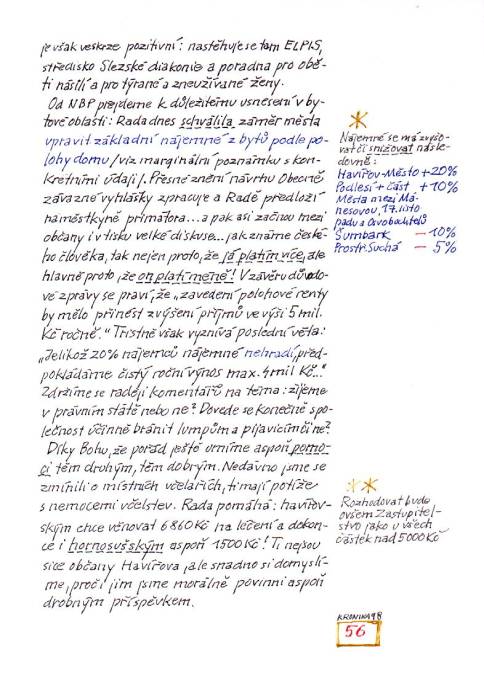 je však veskrze pozitivní: nastěhuje se tam ELPIS,
středisko Slezské diakonie a poradna pro obě-
ti násilí a pro týrané a zneužívané ženy.
Od NBP přejdeme k důležitému usnesení v by-
tové oblasti: Rada dnes schválila záměr města
upravit základní nájemné z bytů podle po-
lohy domu /viz marginální poznámku s kon-
krétními údaji/. Přesné znění návrhu Obecně
závazné vyhlášky zpracuje a Radě předloží
náměstkyně primátora...a pak asi začnou mezi
občany i v tisku velké diskuse...jak známe české-
ho člověka, tak nejen proto, že já platím více, ale
hlavně proto, že on platí méně! V závěru důvodo-
vé zprávy se praví, že „zavedení polohové renty
by mělo přinést zvýšení příjmů ve výši 5 mil.
Kč ročně." Tristně však vyznívá poslední věta:
„Jelikož 20% nájemců nájemné nehradí, před-
pokládáme čistý roční výnos max. 4 mil Kč..."
Zdržíme se raději komentářů na téma: žijeme
v právním státě nebo ne? Dovede se konečně spo-
lečnost účinně bránit lumpům a pijavicím či ne?
Díky Bohu, že pořád ještě umíme aspoň pomo-
ci těm druhým, těm dobrým. Nedávno jsme se
zmínili o místních včelařích, ti mají potíže
s nemocemi včelstev. Rada pomáhá: havířov-
ským chce věnovat 6860 Kč na léčení a dokon-
ce i hornosušským aspoň 1500 Kč! Ti nejsou
sice občany Havířova, ale snadno si domyslí-
me, proč i jim jsme morálně povinni aspoň
drobným příspěvkem.
Nájemné se má zvyšo-
vat či snižovat násle-
dovně:
Havířov-Město +20%
Podlesí + část +10%
Města mezi Má-
nesovou, 17. listo
padu a Osvoboditelů
Šumbark — 10%
Prostř. Suchá — 5%
Rozhodovat bude
ovšem Zastupitel-
stvo jako u všech
částek nad 5000 Kč
KRONIKA 98
56